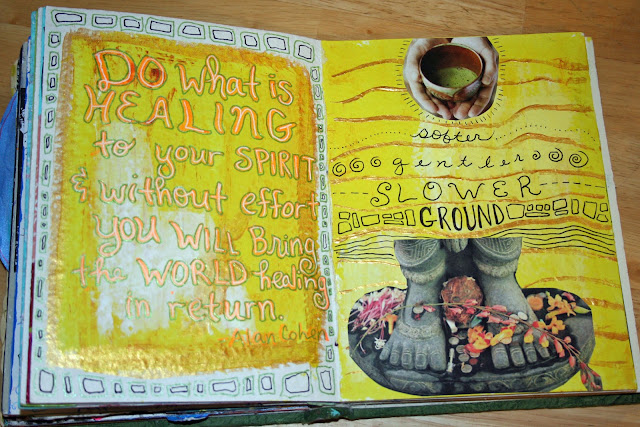 DO What is
HEALING
to your SPIRIT
& without effort
YOU WILL Bring
the WORLD healing
in return.
Alan Cohen
softer
gentler
SLOWER
GROUND